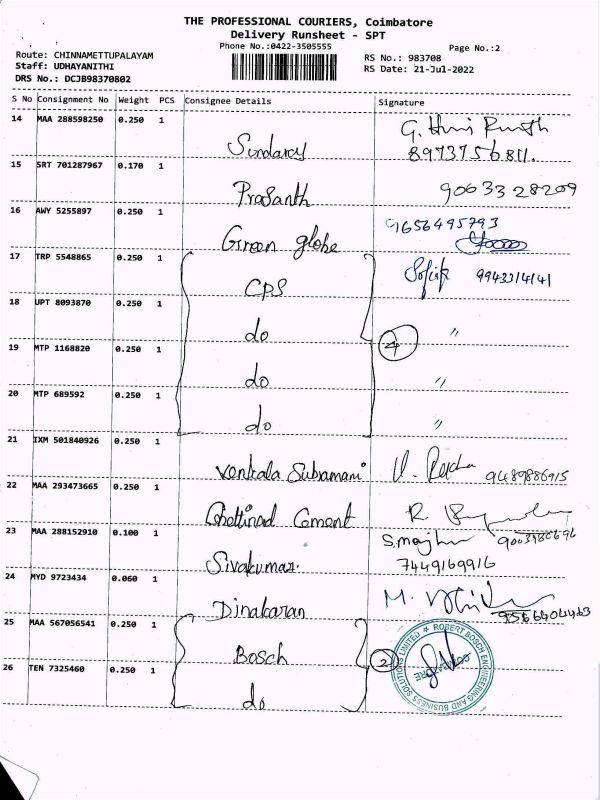 THE PROFESSIONAL COURIERS, Coimbatore
Delivery Runsheet - SPT
Phone No.:0422-3505555
Page No.:2
Route: CHINNAMETTUPALAYAM
Staff: UDHAYANITHI
DRS No.: DCJB98370802
RS No.: 983708
RS Date: 21-Jul-2022
S No Consignment No Weight PCS Consignee Details Signature
14 MAA 288598250 0.250 1
Sundaray
8973756811.
15 SRT 701287967 0.170 1
Prasanth 9003328209
16 AWY 5255897 0.250 1
Green globe 9656495793
17 TRP 5548865 0.250 1
CPS 9943314141
18 UPT 8093870 0.250 1
do 4 "
19 MTP 1168820 0.250 1
do "
20 MTP 689592 0.250 1
do "
21 IXM 501840926 0.250 1
Venkala Subramani 9489886915
22 MAA 293473665 0.250 1
Chettinad Cement
23 MAA 288152910 0.100 1
Sivakumar. 7449169916
24 MYD 9723434 0.060 1
Dinakaran 9566404463
25 MAA 567056541 0.250 1
Bosch 2
26 TEN 7325460 0.250 1
do
ROBERT BOSCH ENGINEERING AND BUSINESS SOLUTIONS LIMITED